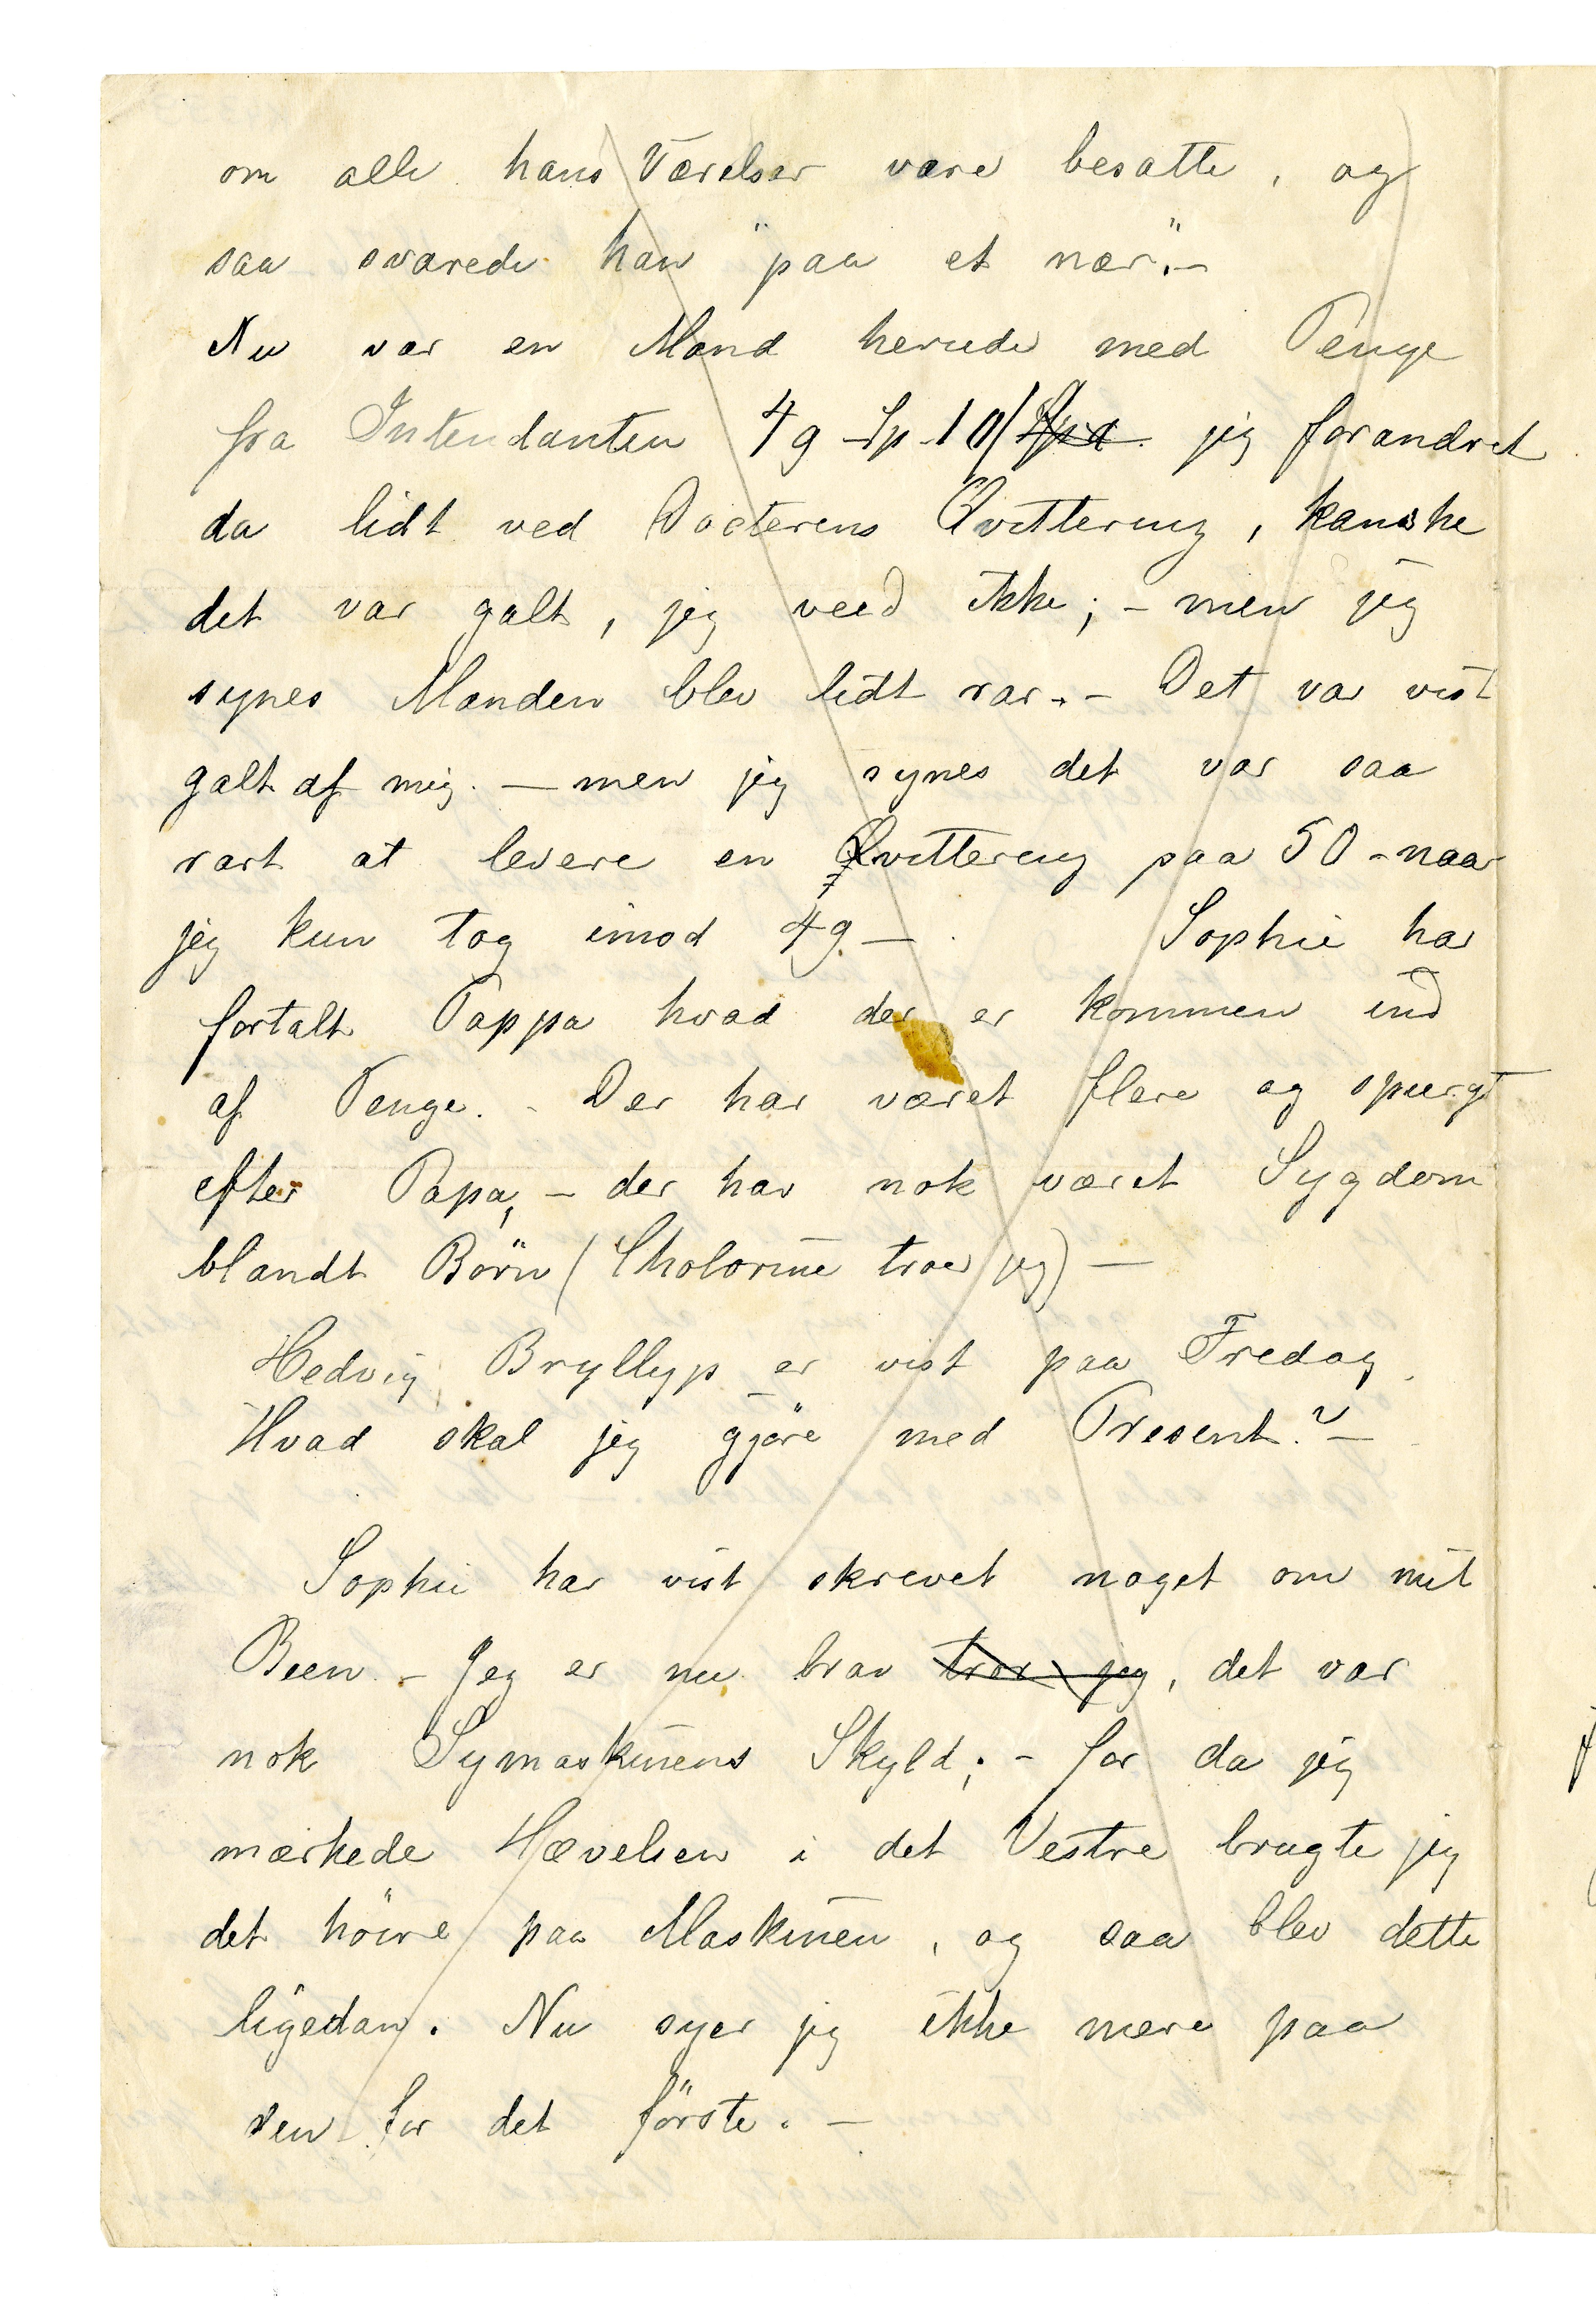 om alle hans Værelser vare besatte, og
saa svarede han "paa et nær".-
Nu var en Mand herude med Penge
fra Intendanten 49 Sp 10/ jeg forandret
da lidt ved Docterens Qvittering, kanske
det var galt, jeg veed ikke; - men jeg
synes Manden blev lidt rar. - Det var vist
galt af mig. - men jeg synes det var saa
rart at levere en Qvittering paa 50 - naar
jeg kun tog imod 49. - Sophie har
fortalt Pappa hvad der er kommen ind
af Penge. - Der har været flere og spurgt
efter Papa, - der har nok været Sygdom
blandt Börn (Cholorine troer jeg) -
Hedvig Bryllyp er vist paa Fredag.
Hvad skal jeg gjöre med Present? -
Sophie har vist skrevet noget om mit
Been. - Jeg er nu brav tror jeg, det var
nok Symaskinens Skyld; - for da jeg
mærkede Hævelsen i det Vestre brugte jeg
det höire paa Maskinen, og saa blev dette
ligedan. Nu syer jeg ikke mere paa
den for det förste. -